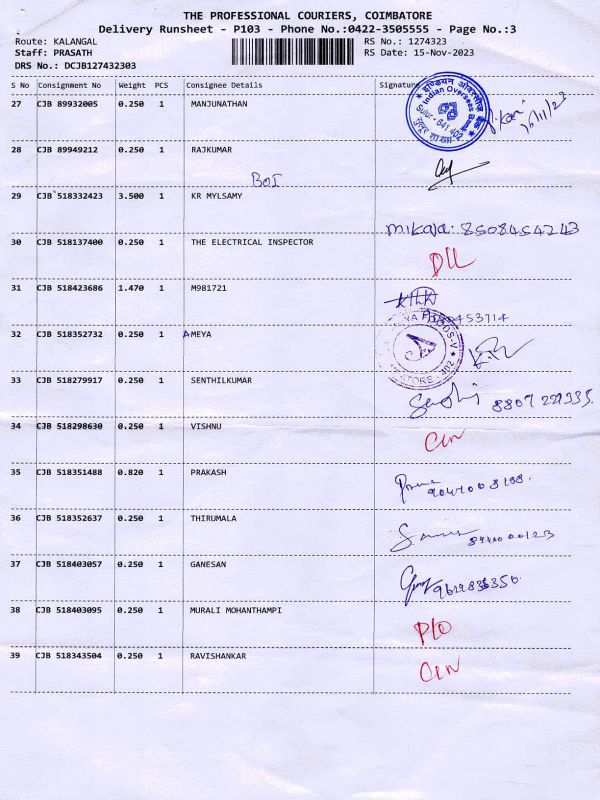 THE PROFESSIONAL COURIERS, COIMBATORE
Delivery Runsheet - P103 - Phone No.:0422-3505555 - Page No.:3
Route: KALANGAL
RS No.: 1274323
Staff: PRASATH
RS Date: 15-Nov-2023
DRS No.: DCJB127432303
S No Consignment No Weight PCS Consignee Details Signature
27 CJB 89932005 0.250 1 MANJUNATHAN
इण्डियन ओवरसीज़ बैंक
Indian Overseas Bank
Sulur - 641 402
28 CJB 89949212 0.250 1 RAJKUMAR
BOI
29 CJB 518332423 3.500 1 KR MYLSAMY
8508454243
30 CJB 518137400 0.250 1 THE ELECTRICAL INSPECTOR
D/L
31 CJB 518423686 1.470 1 M981721
32 CJB 518352732 0.250 1 AMEYA
33 CJB 518279917 0.250 1 SENTHILKUMAR
34 CJB 518298630 0.250 1 VISHNU
35 CJB 518351488 0.820 1 PRAKASH
36 CJB 518352637 0.250 1 THIRUMALA
37 CJB 518403057 0.250 1 GANESAN
9629836350
38 CJB 518403095 0.250 1 MURALI MOHANTHAMPI
P/O
39 CJB 518343504 0.250 1 RAVISHANKAR